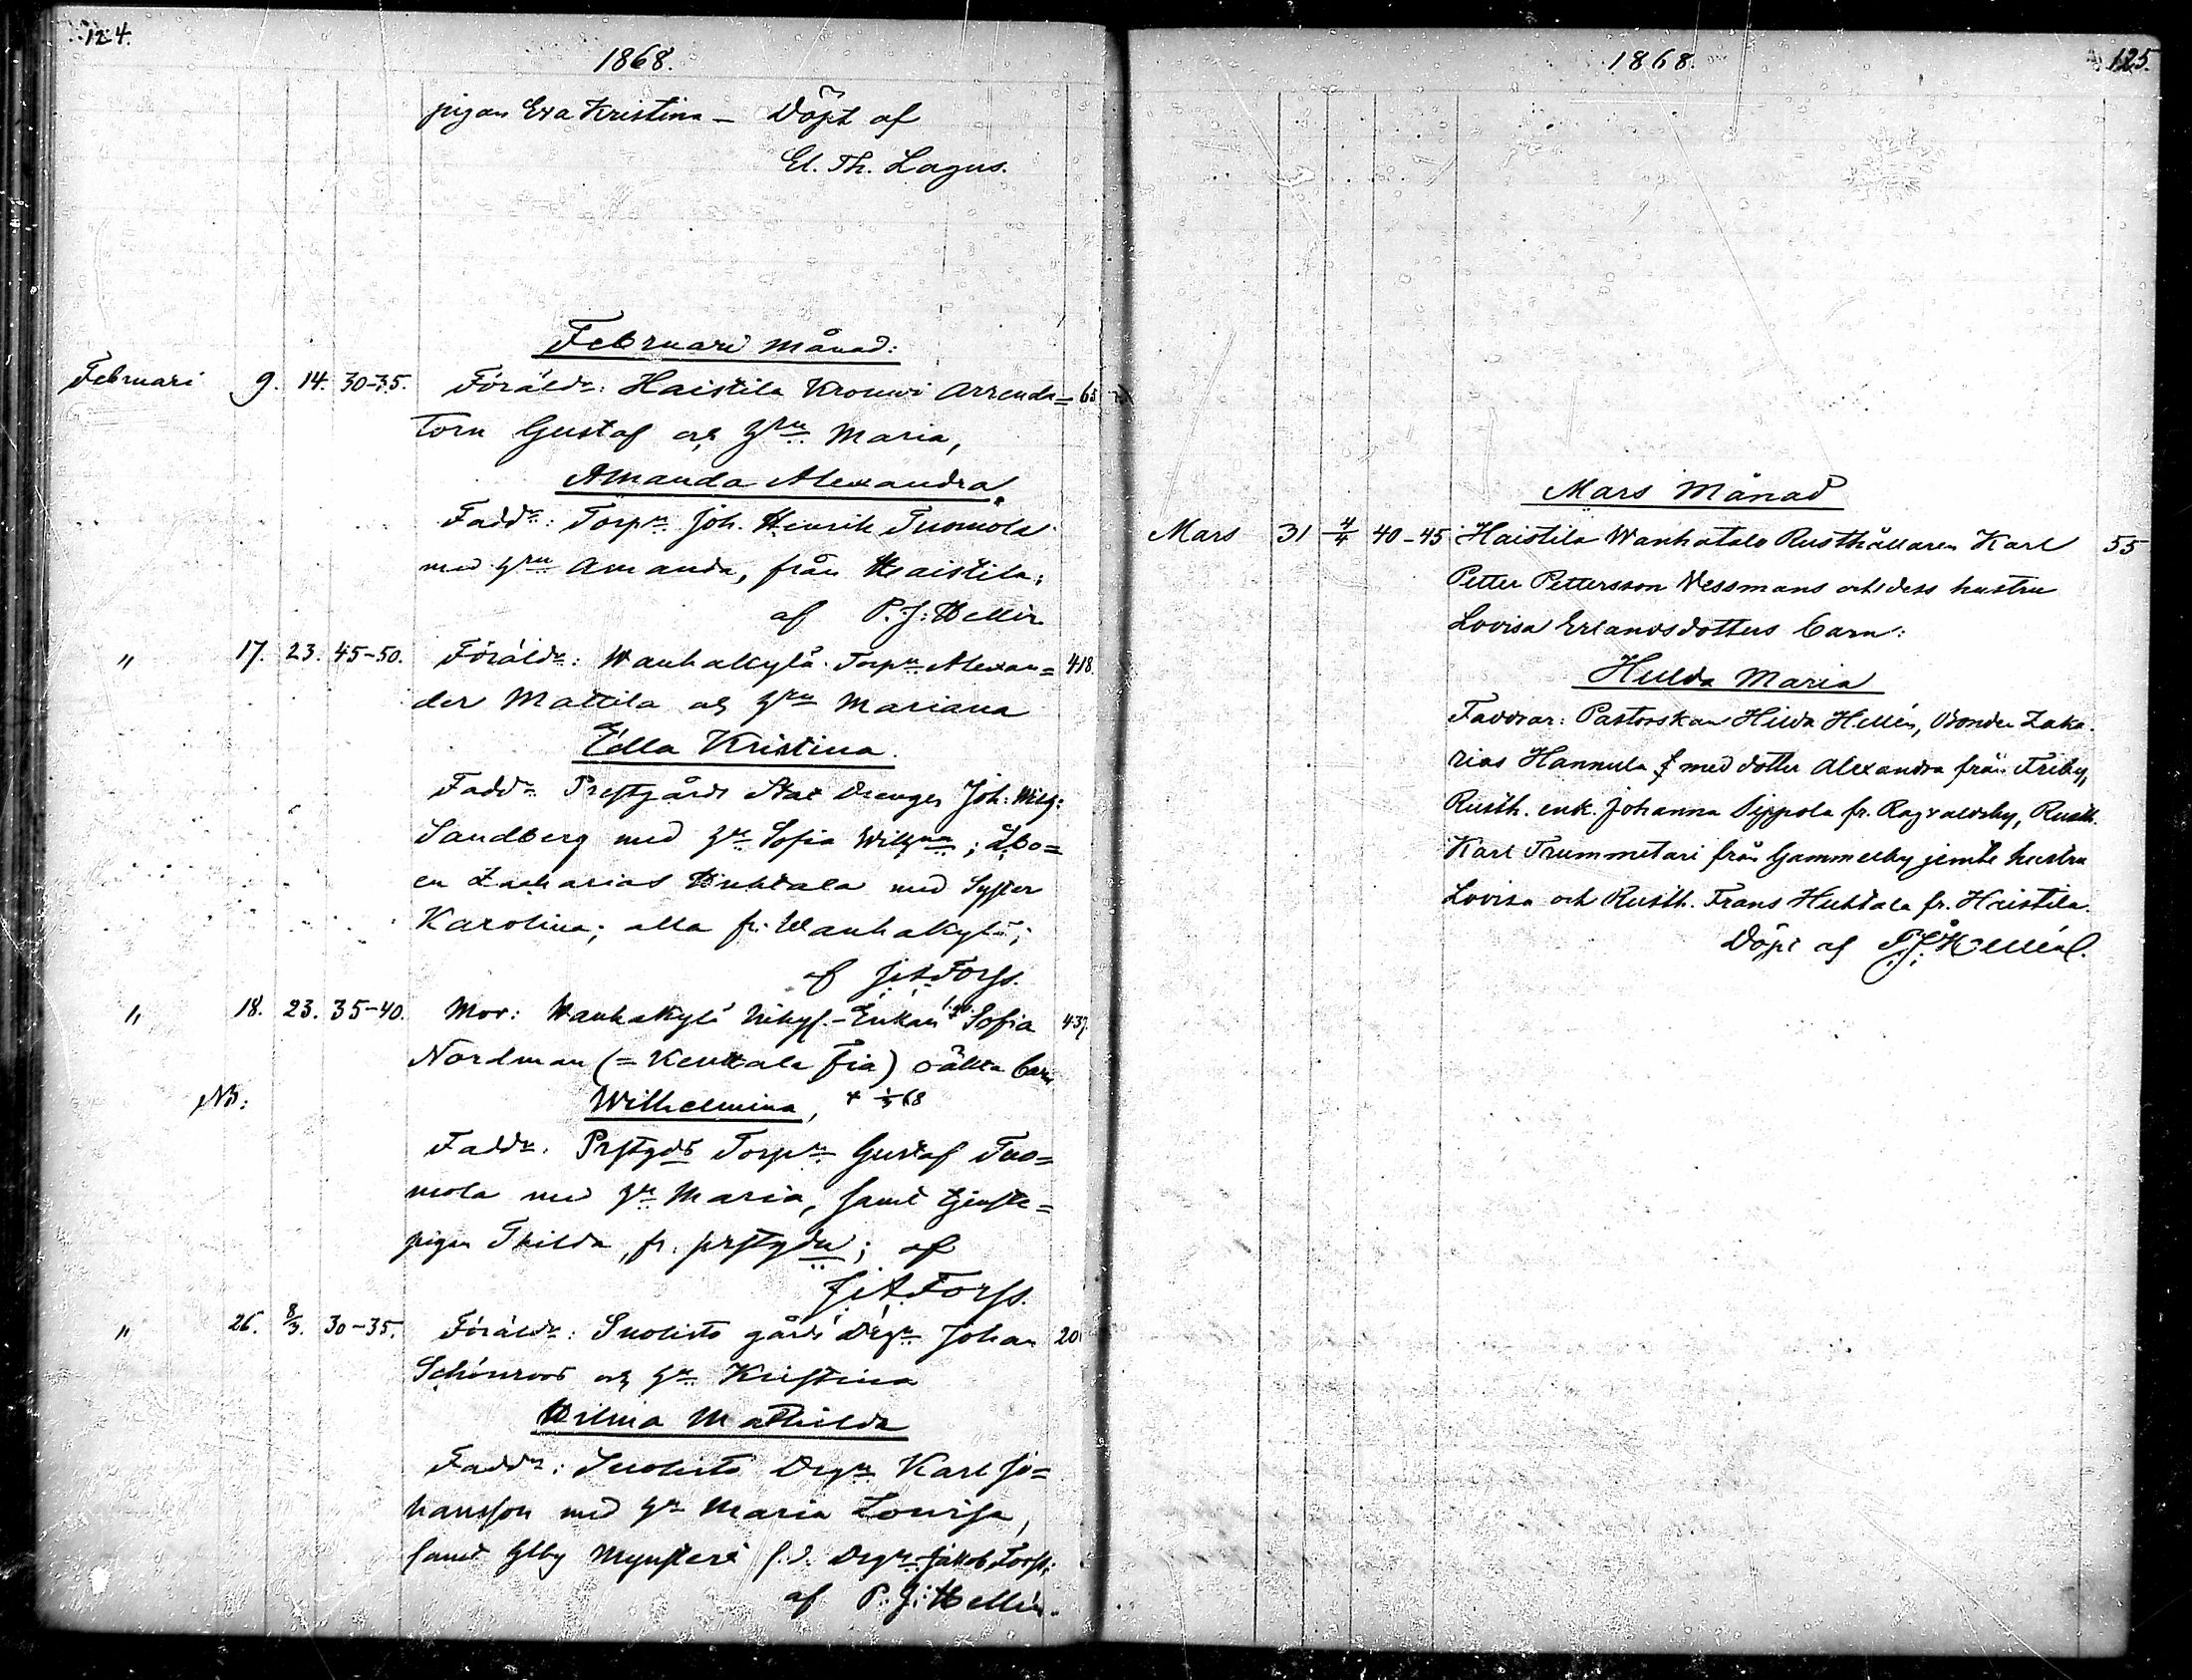 124.
1868.
pigan Eva Kristina – Döpt af
El. Th. Lagus.
Februari Månad:
Februari 9. 14. 30-35. Föräldr: Haistila Arrenda= 65
torn Gustaf och Hru Maria,
Amanda Alexandra.
Faddr: Torpn Joh. Henrik Tuomola
med Hru Amanda, från Haistila;
af P. J. Hellén
" 17. 23. 45-50. Föräldr: Wanhakylä Torpn Alexan= 418.
der Mattila och Hru Mariana
Edla Kristina.
Faddr Prestgårds Drengen Joh: Wilh:
Sandberg med Hu Sofia Wilhna; Åbo=
en Zacharias Huhtala med Syster
Karolina; alla fr. Wanhakylä;
af J. A. Forss.
" 18. 23. 35-40. Mor: Wanhakylä Enkan Sofia 437.
Nordman (= Fia) oäkta barn
NB: Wilhelmina, 68
Faddr. Prstgds Torpn Gustaf Tuo=
mola med Hu Maria, samt tjenste=
pigan Thilda, fr. prstgdn; af
J. A. Forss.
" 26. 8/3. 30-35. Föräldr: Suolisto gårds Drgn Johan 20
Schönroos och Hu Kristina
Hilma Mathilda
Faddr: Suolisto Drgn Karl Jo=
hansson med Hu Maria Lovisa,
samt Glby f. d. Drgn Jakob
af P. J. Hellén.
1868. 125.
Mars Månad
Mars 31 4/4 40-45 Haistila Wanhatalo Rusthållaren Karl 55
Petter Pettersson Wessmans och dess hustru
Lovisa Erlandsdotters barn:
Hulda Maria
Faddrar: Pastorskan Hilda Hellén, Bonden Zaka-
rias Hannula med dotter Alexandra från Friby,
Rusth. enk. Johanna Sippola fr. Ragvaldsby, Rusth.
Karl Trummetari från Gammelby jemte hustru
Lovisa och Rusth. Frans Huhtala fr. Haistila.
Döpt af P. J. Hellén.